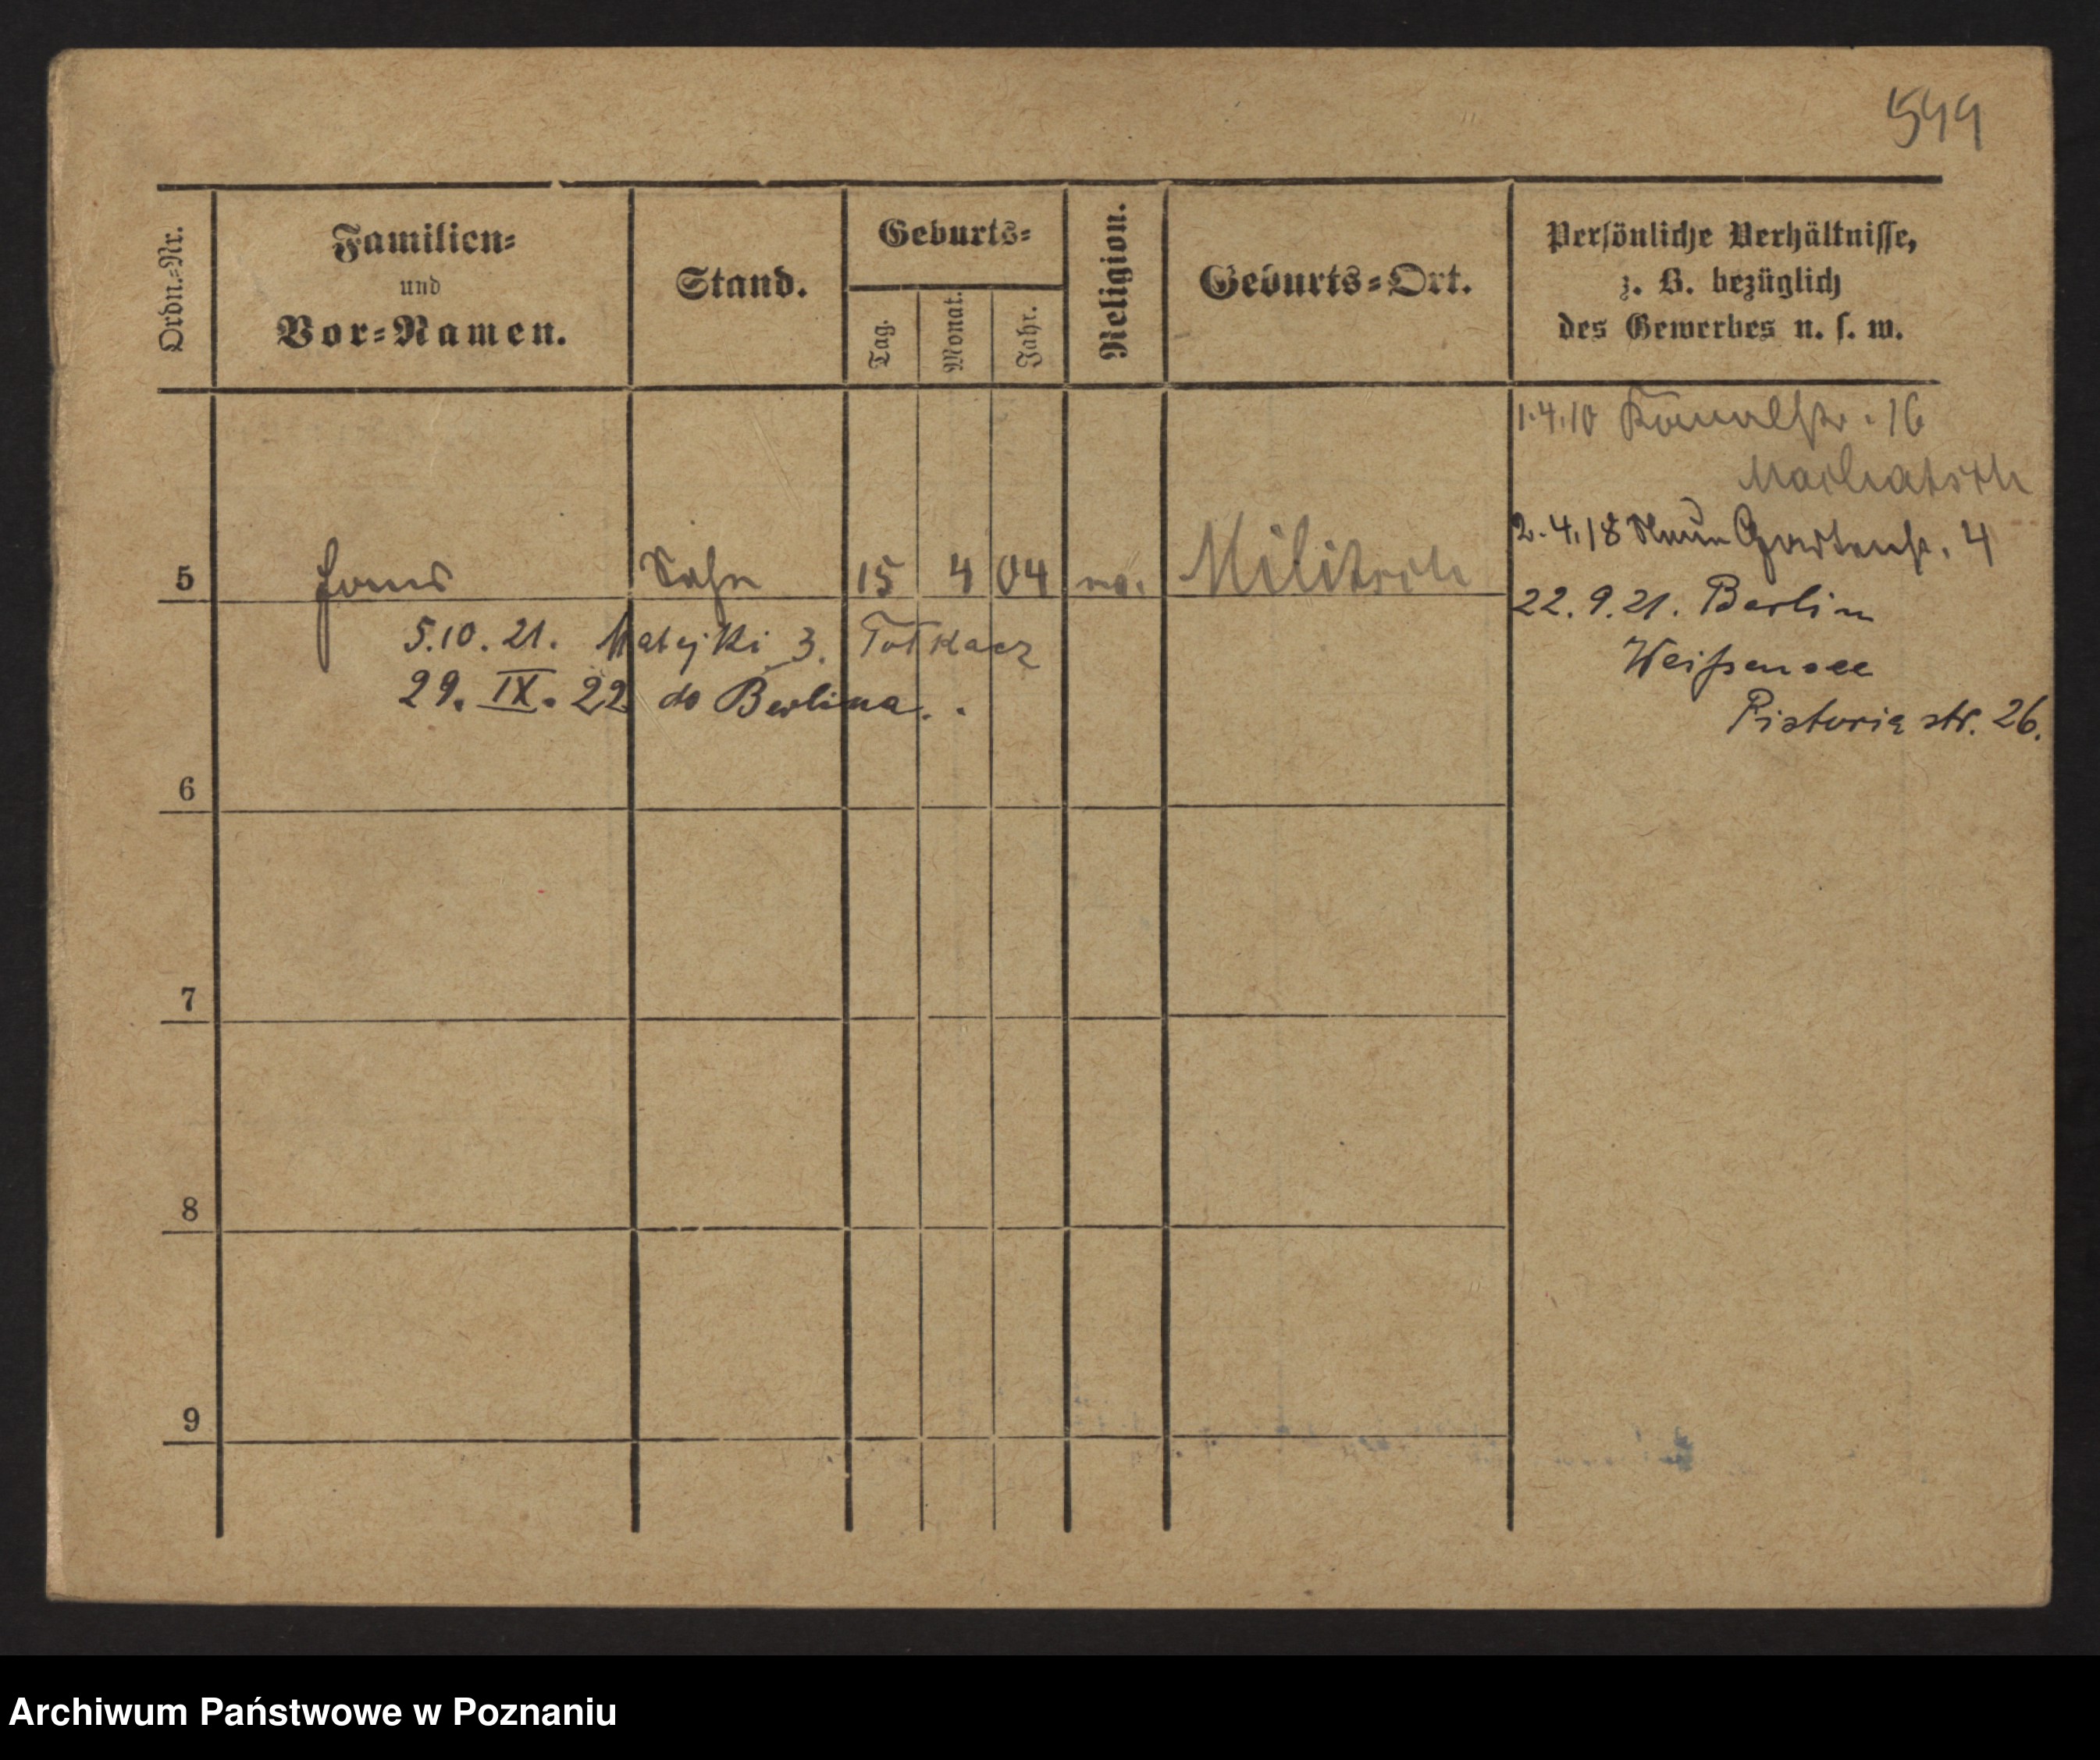 599
Ordn.=Nr.
Familien=
und
Vor=Namen.
Stand.
Geburts=
Tag.
Monat.
Jahr.
Religion.
Geburts=Ort.
Persönliche Verhältnisse,
z. B. bezüglich
des Gewerbes u. s. w.
1.4.10 16
2.4.18 Gartenstr. 4
5 Sohn 15 4 04 Militsch
22.9.21. Berlin
Weißensee
Pistoria str. 26.
5.10.21. Matejki 3.
29. IX. 22 do Berlina.
6
7
8
9
Archiwum Państwowe w Poznaniu